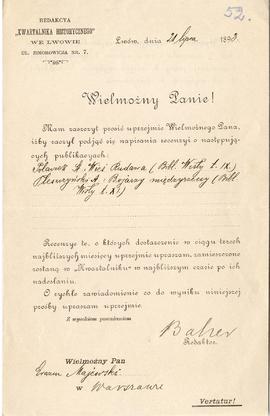 52.
REDAKCYA
„KWARTALNIKA HISTORYCZNEGO"
WE LWOWIE
UL. ZIMOROWICZA NR. 7.
Lwów, dnia 21 lipca 1893
Wielmożny Panie!
Mam zaszczyt prosić uprzejmie Wielmożnego Pana,
iżby raczył podjąć się napisania recenzyi o następują-
cych publikacyach:
Polaczek St. Wieś Rudawa (Bibl. Wisły t. IX)
Pleszczyński A. Bojarzy międzyrzeccy (Bibl.
Wisły t. XI)
Recenzye te, o których dostarczenie w ciągu trzech
najbliższych miesięcy uprzejmie upraszam, zamieszczone
zostaną w „Kwartalniku" w najbliższym czasie po ich
nadesłaniu.
O rychłe zawiadomienie co do wyniku niniejszej
prośby upraszam uprzejmie.
Z wysokiem poważaniem
Balzer
Redaktor.
Wielmożny Pan
Erazm Majewski
w Warszawie
Vertatur!